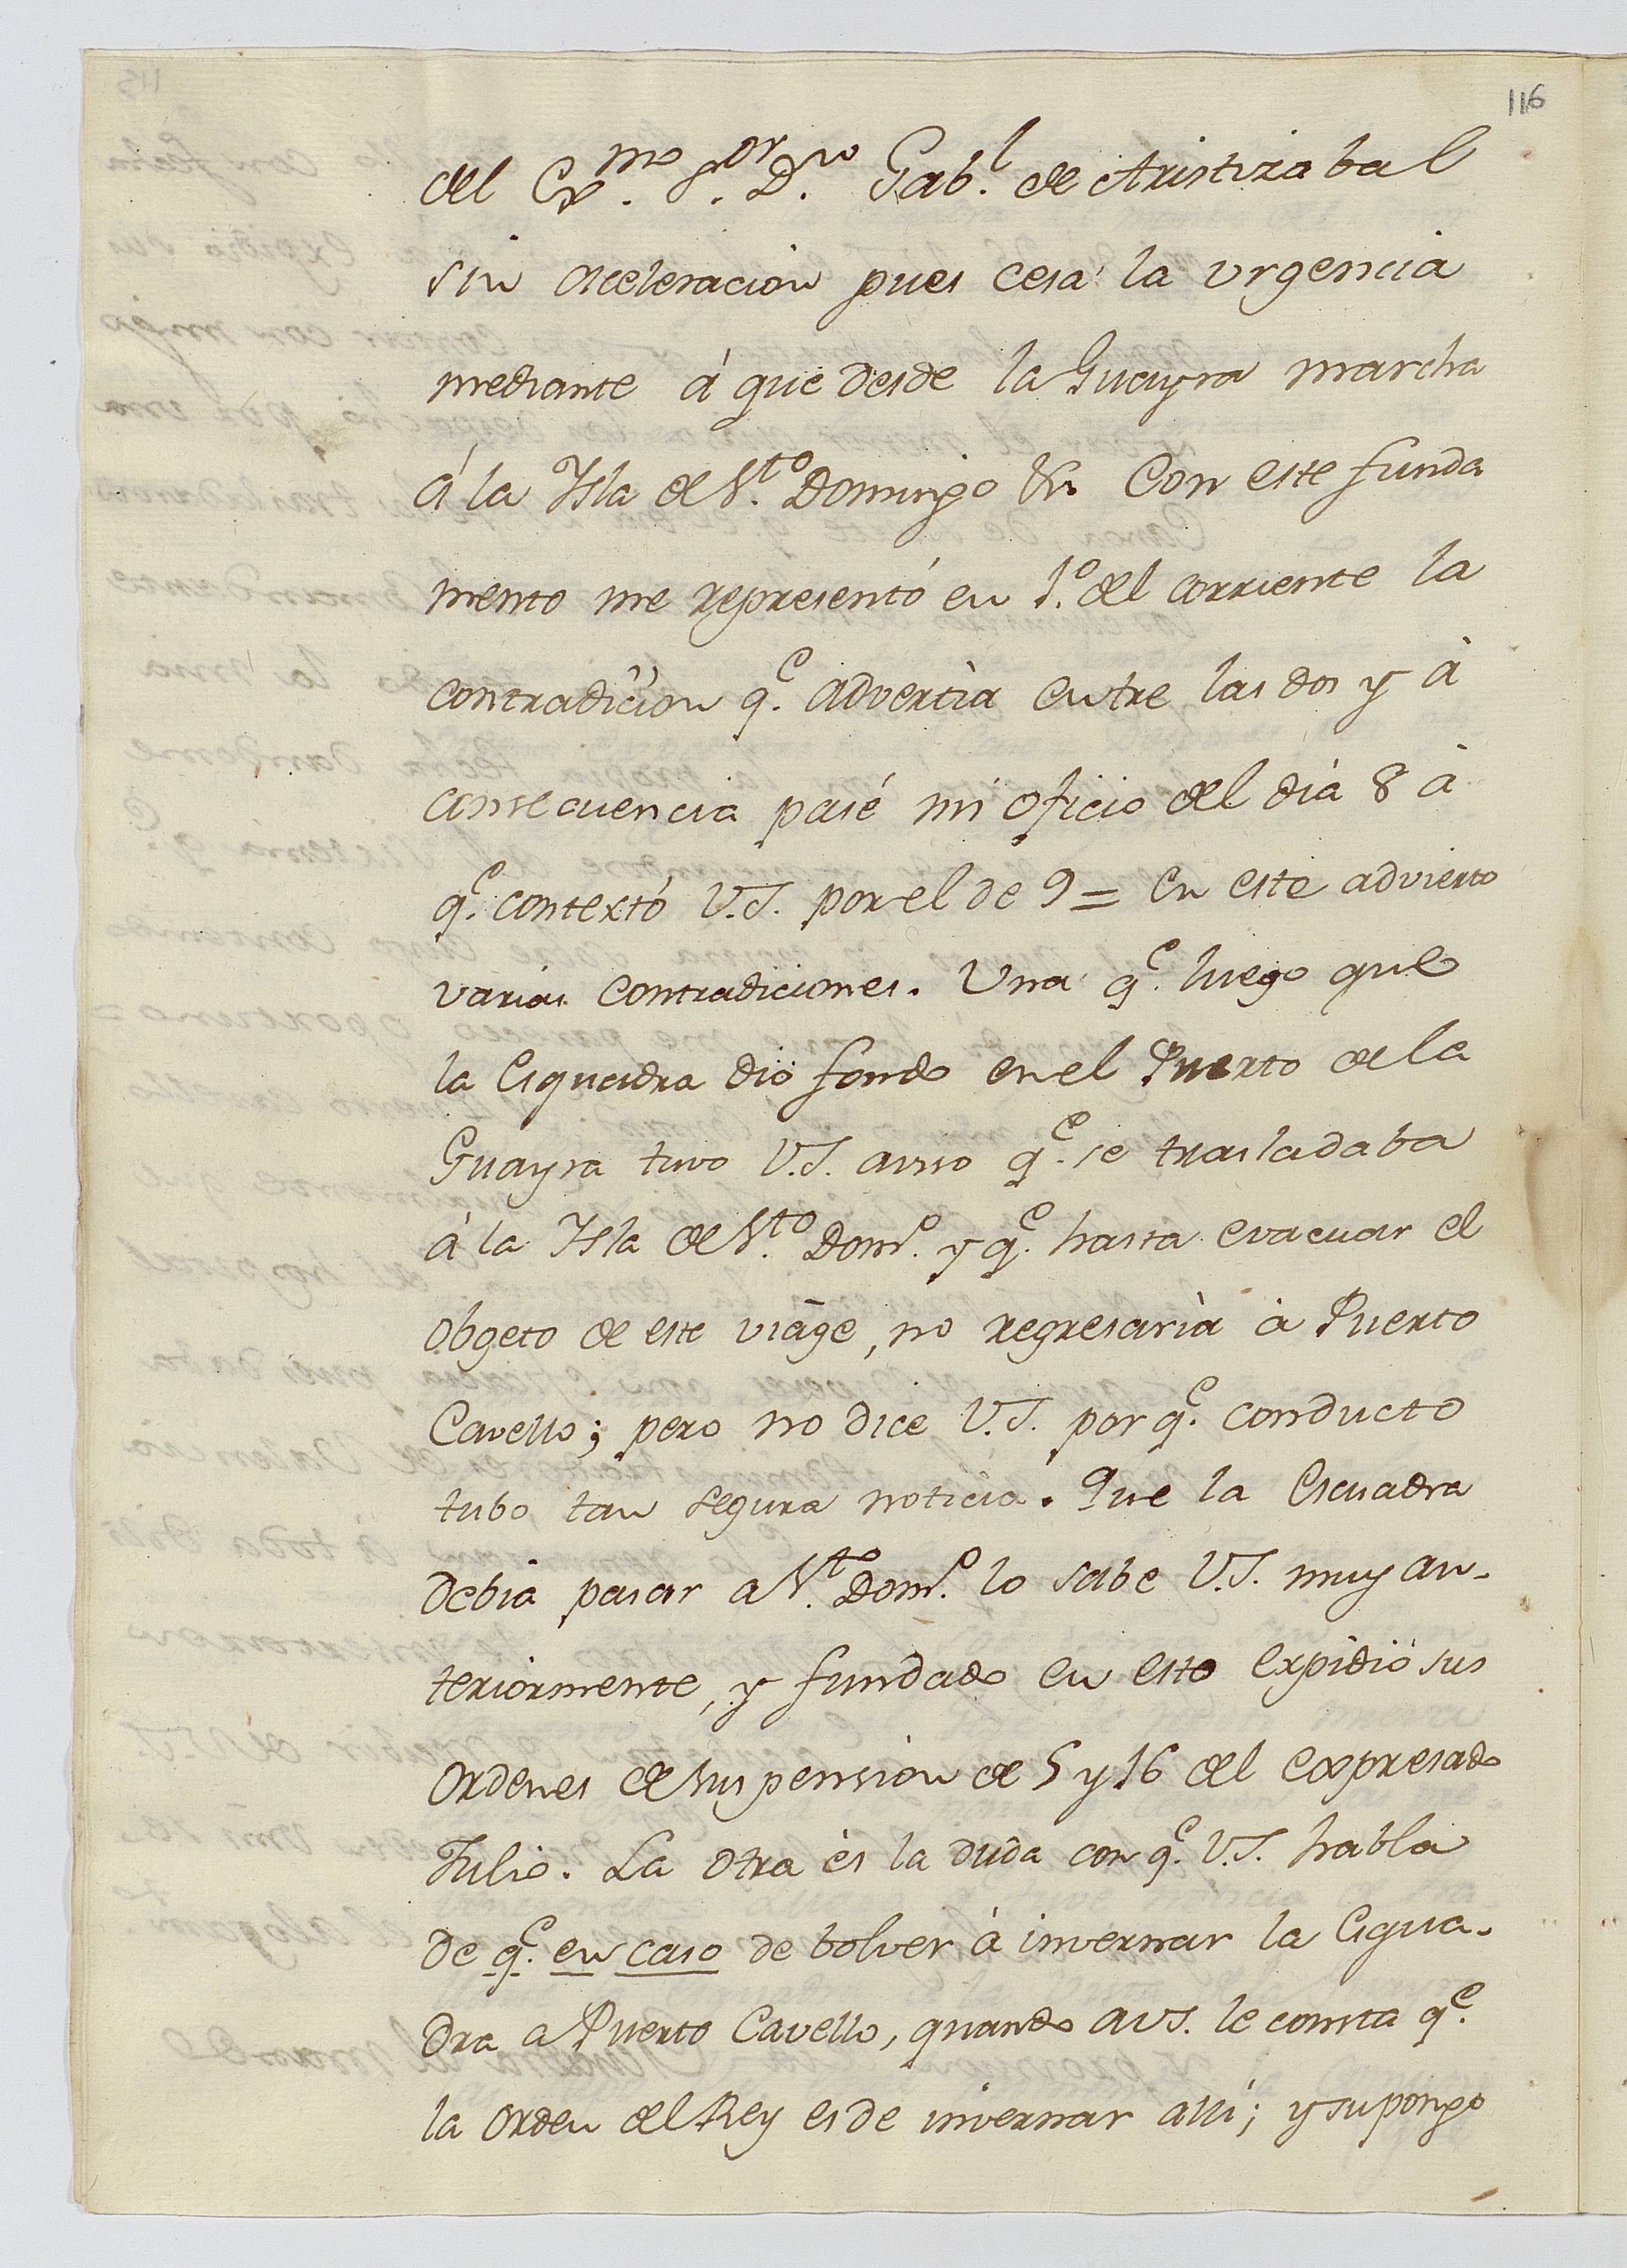 116
del Ex.mo S.or D.n Gab.l de Aristizabal
sin aceleracion pues cesa la urgencia
mediante á que desde la Guayra marcha
á la Isla de S.to Domingo &a. Con este funda
mento me representó en 1.o del corriente la
contradicion q.e advertia entre las dos y á
consecuencia pasé mi oficio del dia 8 á
q.e contextó V.S. por el de 9 = En este advierto
varias contradiciones. Una q.e luego que
la Esquadra dió fondo en el Puerto de la
Guayra tuvo V.S. aviso q.e se trasladaba
á la Isla de S.to Dom.o y q.e hasta evacuar el
obgeto de este viage, no regresaria á Puerto
Cavello; pero no dice V.S. por q.e conducto
tubo tan segura noticia. Que la Escuadra
debia pasar a S.to Dom.o lo sabe V.S. muy an-
teriormente, y fundado en esto expidió sus
ordenes de suspension de 5 y 16 del expresado
Julio. La otra és la duda con q.e V.S. habla
de q.e en caso de bolver á invernar la Esqua-
dra a Puerto Cavello, quando a VS. le consta q.e
la orden del Rey es de invernar alli; y supongo